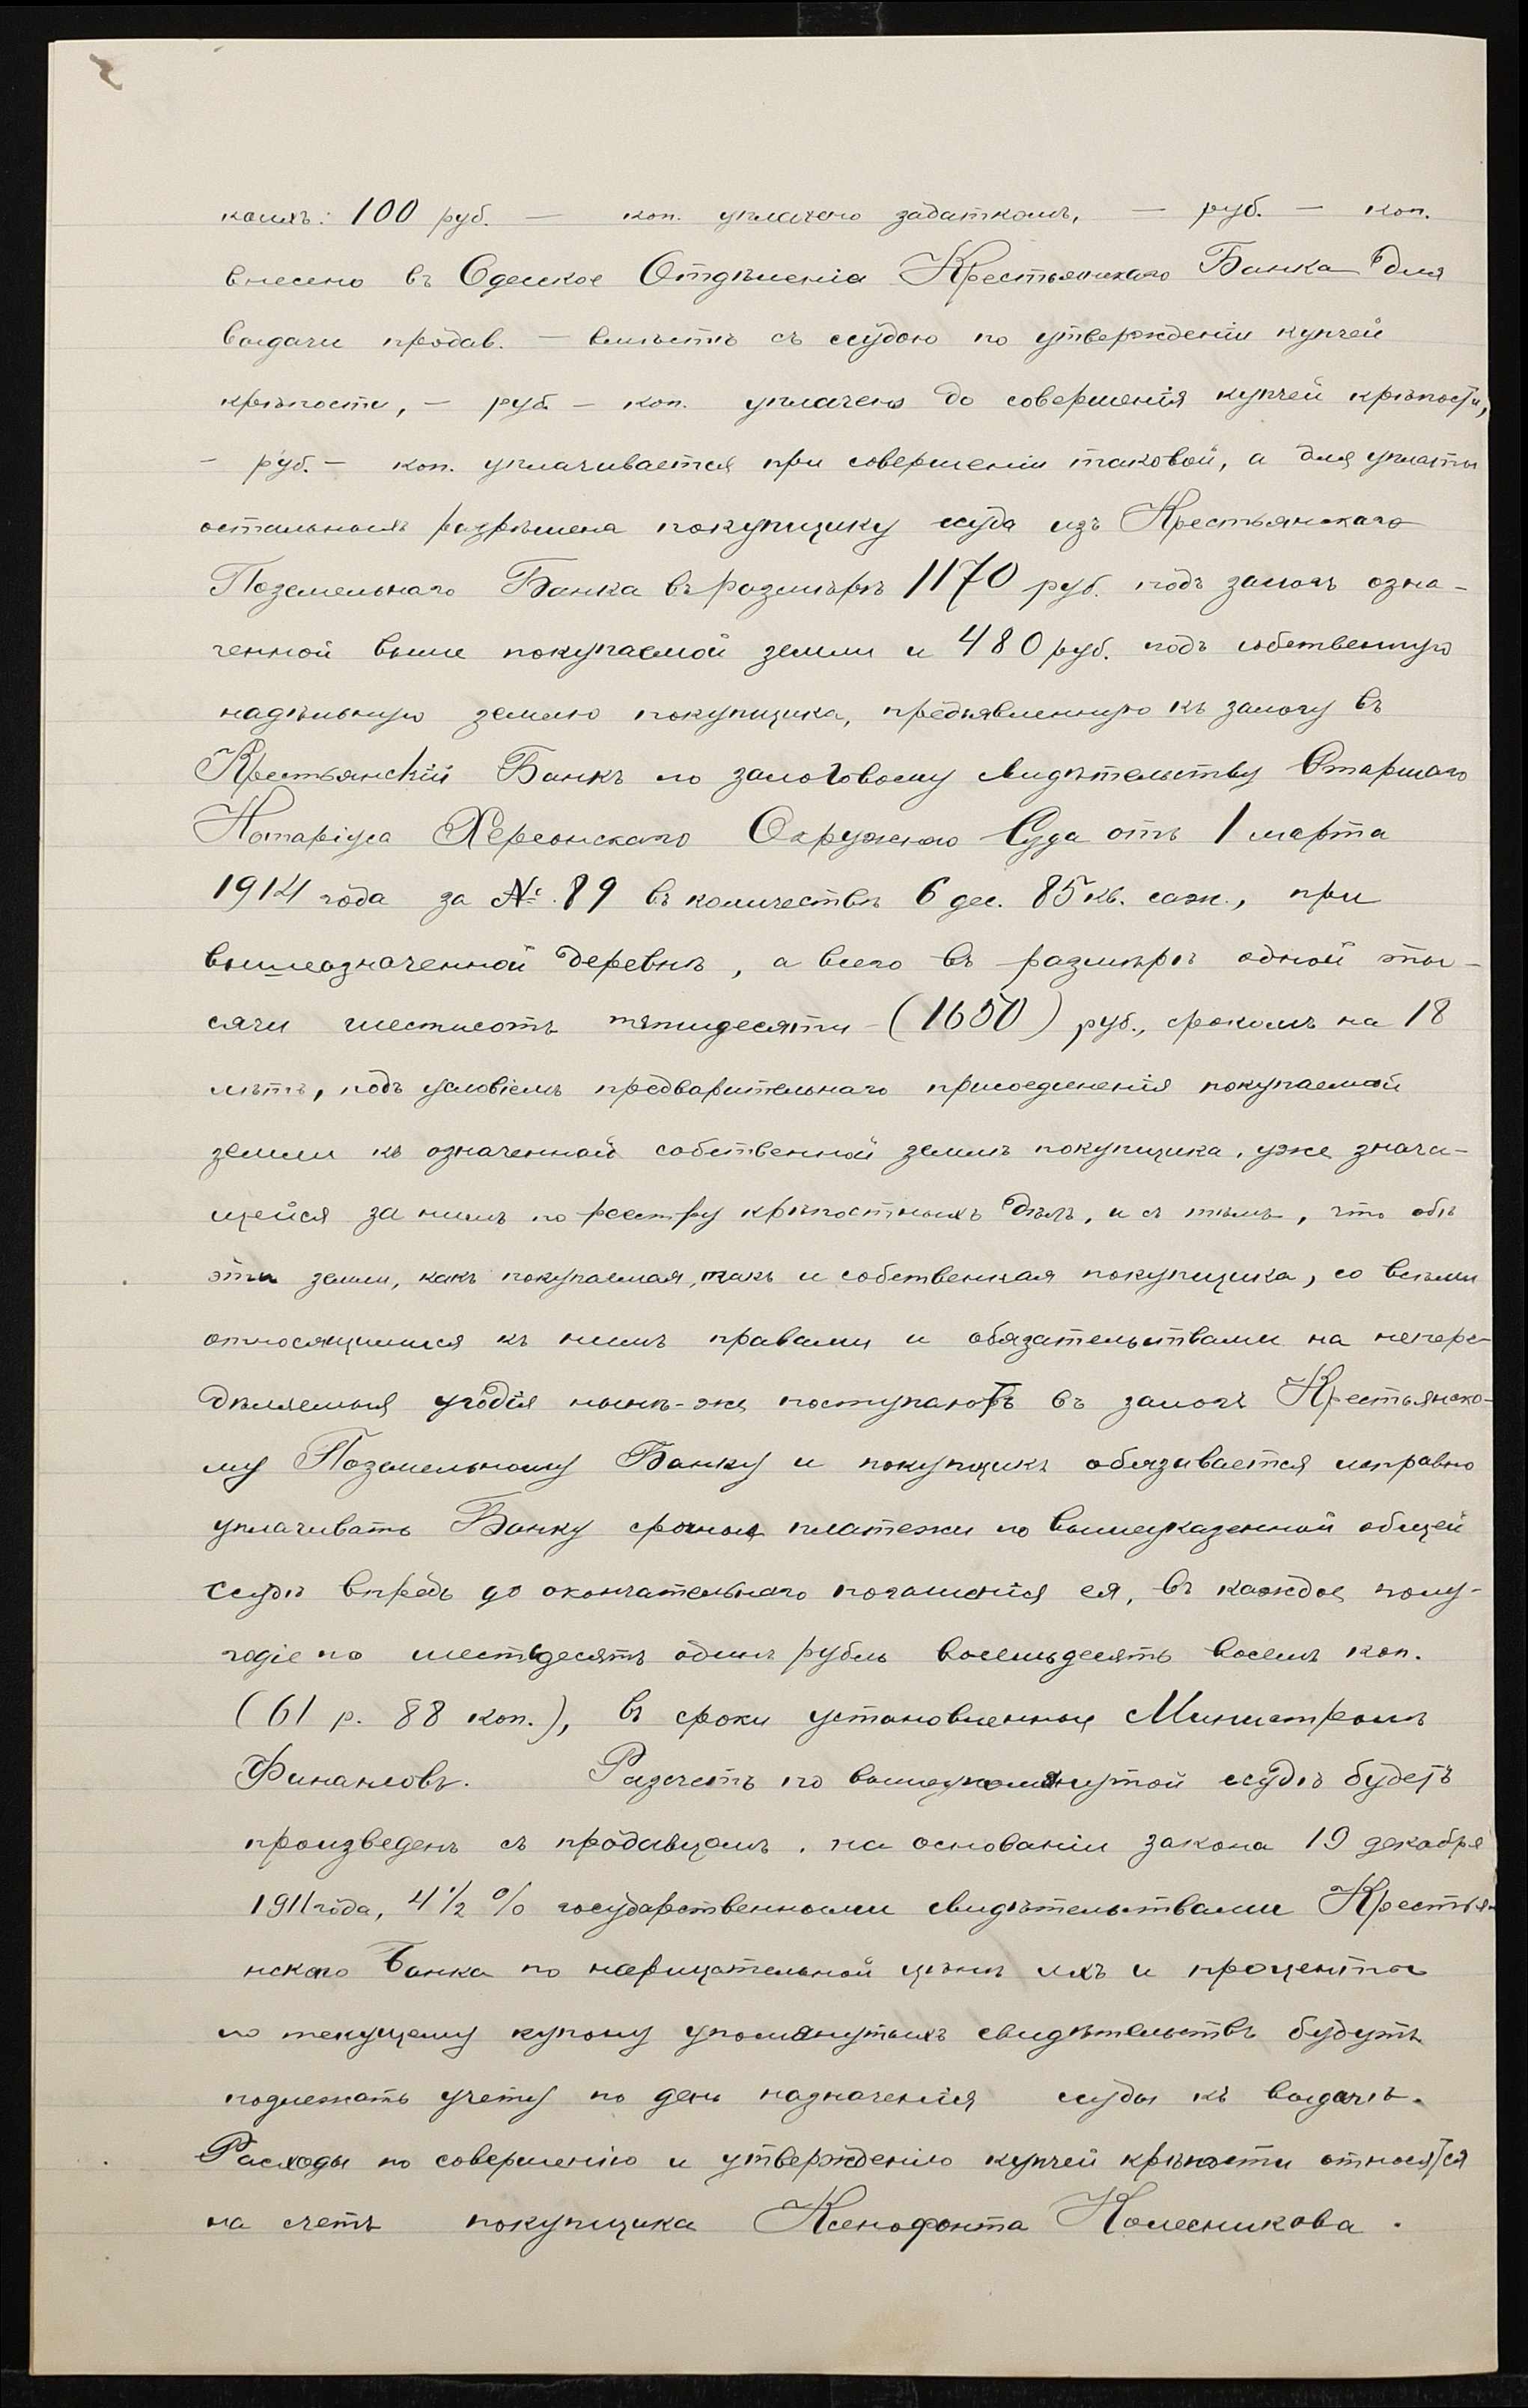 коихъ: 100 руб. — коп. уплачено задаткомъ, — руб. — коп.
внесено въ Одесское Отдѣленіе Крестьянскаго Банка для
выдачи продав. — вмѣстѣ съ ссудою по утвержденіи купчей
крѣпости, — руб. — коп. уплачено до совершенія купчей крѣпости,
— руб. — коп. уплачивается при совершеніи таковой, а для уплаты
остальныхъ разрѣшена покупщику ссуда изъ Крестьянскаго
Поземельнаго Банка въ размѣрѣ 1170 руб. подъ залогъ озна-
ченной выше покупаемой земли и 480 руб. подъ собственную
надѣльную землю покупщика, предъявленную къ залогу въ
Крестьянскій Банкъ по залоговому свидѣтельству Старшаго
Нотаріуса Херсонскаго Окружного Суда отъ 1 марта
1914 года за № 89 въ количествѣ 6 дес. 85 кв. саж., при
вышеозначенной деревнѣ, а всего въ размѣрѣ одной ты-
сячи шестисотъ пятидесяти (1650) руб., срокомъ на 18
лѣтъ, подъ условіемъ предварительнаго присоединенія покупаемой
земли къ означенной собственной землѣ покупщика, уже знача-
щейся за нимъ по реестру крѣпостныхъ дѣлъ, и съ тѣмъ, что обѣ
эти земли, какъ покупаемая, такъ и собственная покупщика, со всѣми
относящимися къ нимъ правами и обязательствами на непере-
дѣляемыя угодія нынѣ-же поступаютъ въ залогъ Крестьянско-
му Поземельному Банку и покупщикъ обязывается исправно
уплачивать Банку срочные платежи по вышеуказанной общей
ссудѣ впредь до окончательнаго погашенія ея, въ каждое полу-
годіе по шестьдесятъ одинъ рубль восемьдесятъ восемь коп.
(61 р. 88 коп.), въ сроки установленные Министромъ
Финансовъ. Разсчетъ по вышеупомянутой ссудѣ будетъ
произведенъ съ продавцомъ, на основаніи закона 19 декабря
1911 года, 4½ % государственными свидѣтельствами Крестья-
нскаго Банка по нарицательной цѣнѣ ихъ и проценты
по текущему купону упомянутыхъ свидѣтельствъ будутъ
подлежать учету по день назначенія ссуды къ выдачѣ.
Расходы по совершенію и утвержденію купчей крѣпости относятся
на счетъ покупщика Ксенофонта Колесникова.